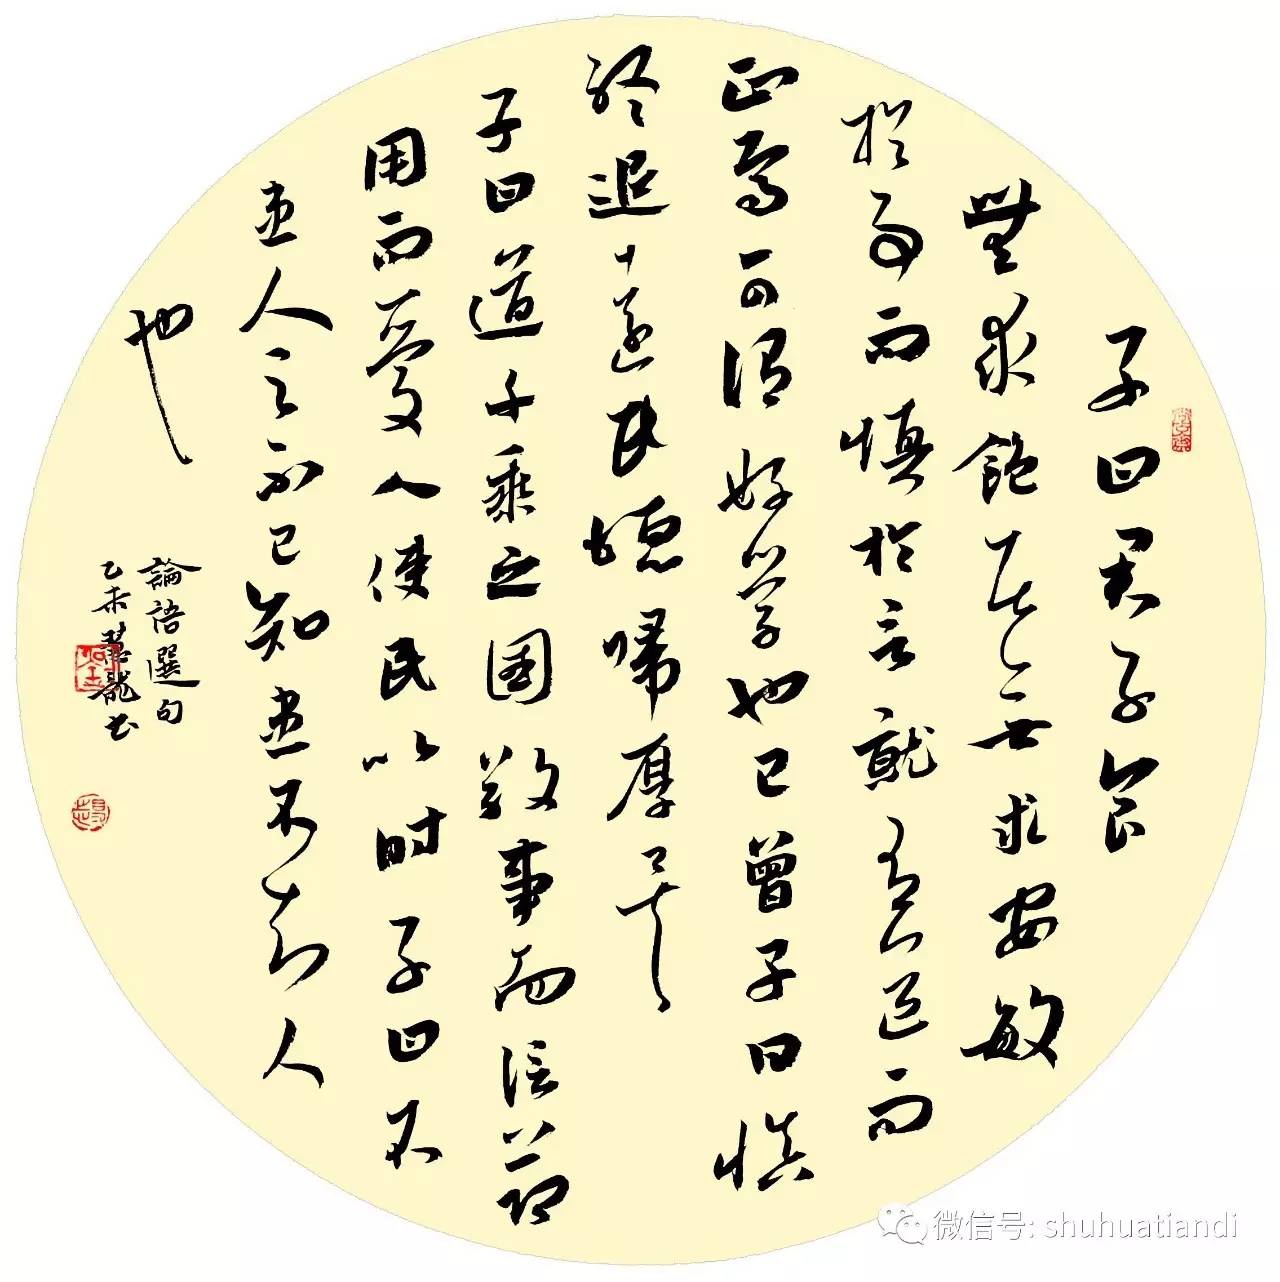 子曰君子食
無求飽居無求安敏
於事而慎於言就有道而
正焉可謂好學也已曾子曰慎
終追遠民德歸厚矣
子曰道千乘之國敬事而信節
用而愛人使民以時子曰不
患人之不己知患不知人
也
論語選句
乙未龍書
微信号: shuhuatiandi